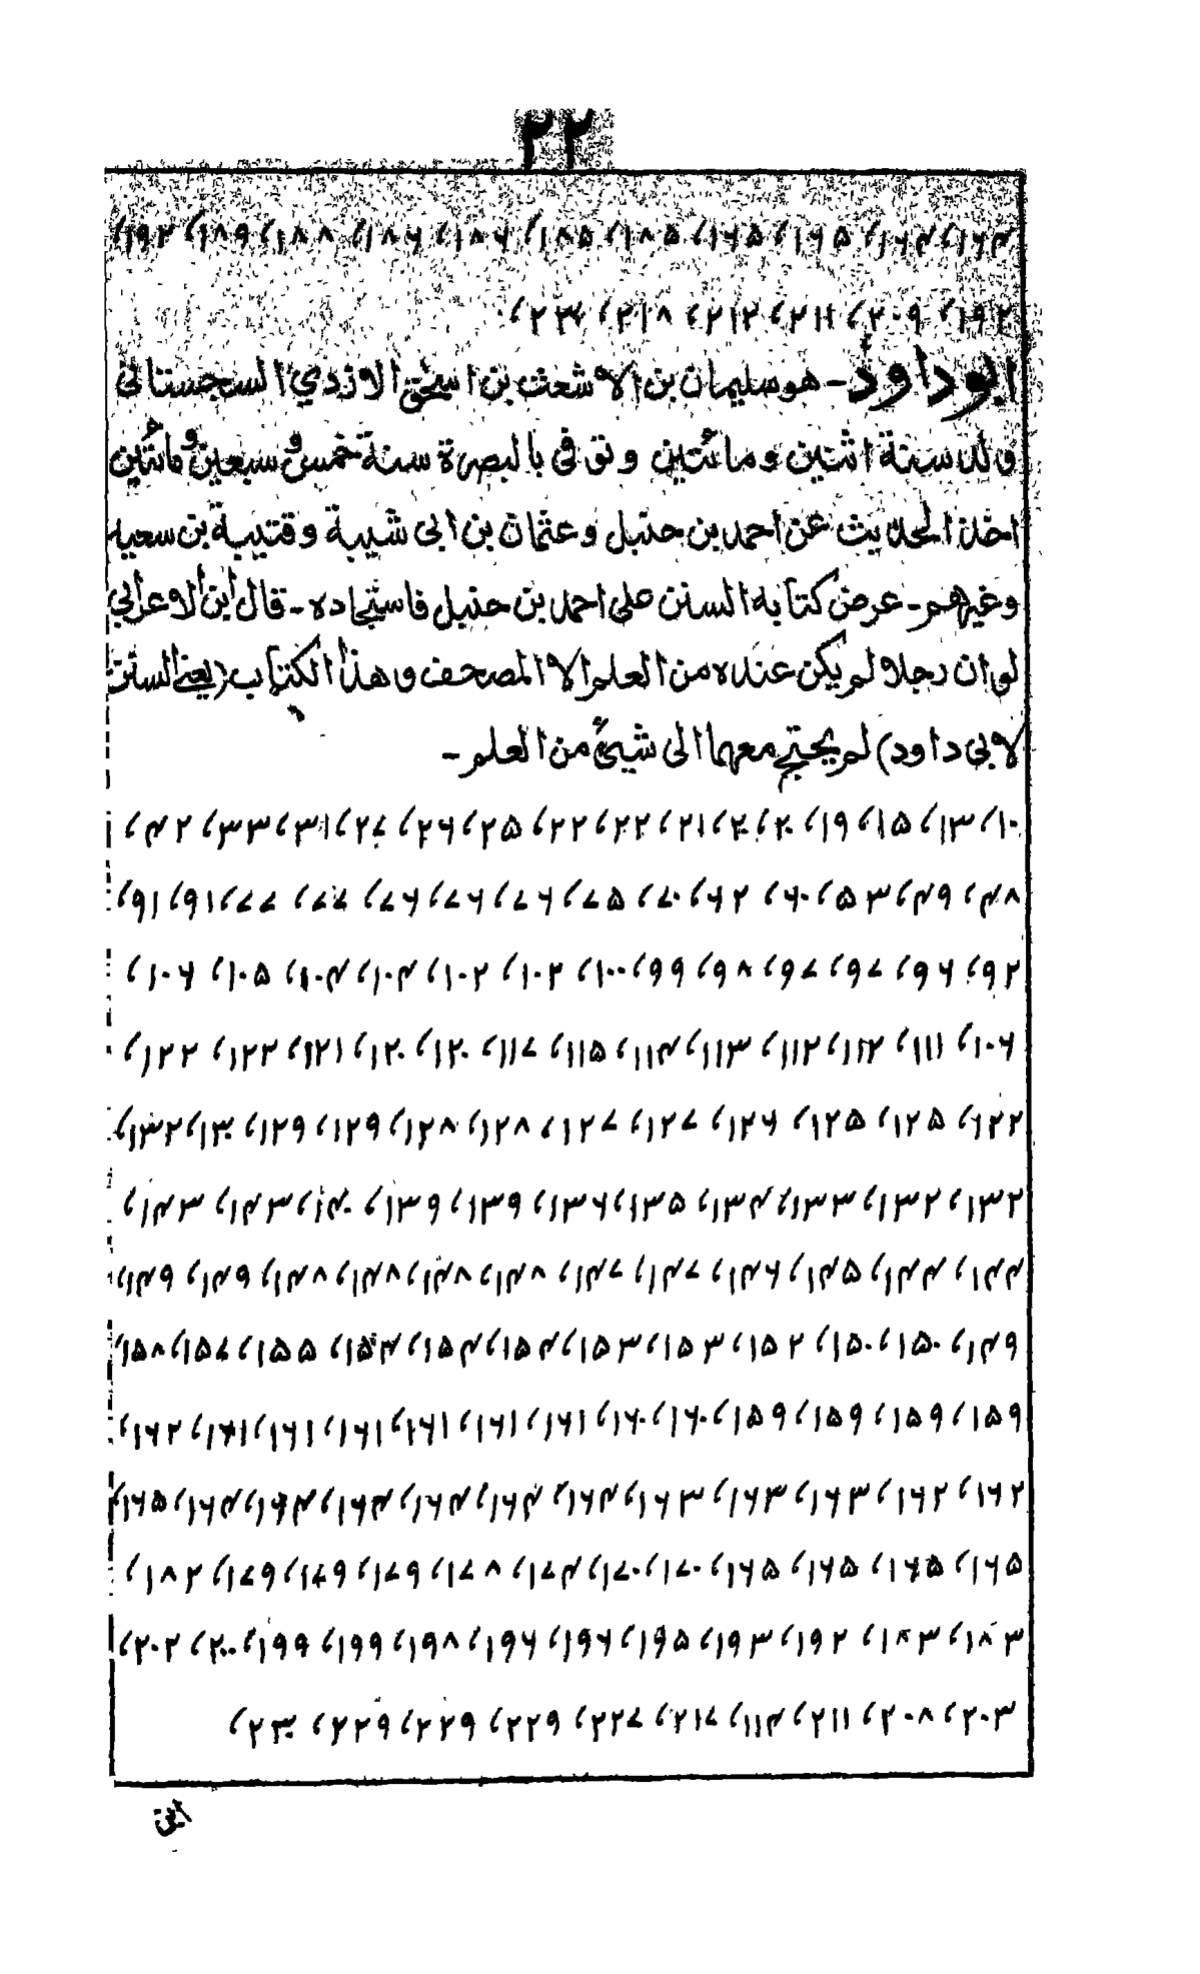 ۲۲
۱۶۴، ۱۶۴، ۱۶۵، ۱۶۵، ۱۸۵، ۱۸۵، ۱۸۶، ۱۸۶، ۱۸۸، ۱۸۹، ۱۹۲،
۱۹۲، ۲۰۹، ۲۱۱، ۲۱۲، ۲۱۸، ۲۳۴،
ابو داود - هو سليمان بن الاشعث بن اسحٰق الازدي السجستانی
ولد سنة اثنين ومائتين وتوفی بالبصرة سنة خمس وسبعين ومائتين
اخذ الحديث عن احمد بن حنبل وعثمان بن ابی شيبة وقتيبة بن سعيد
وغيرهم - عرض كتابه السنن علی احمد بن حنبل فاستجاده - قال ابن الاعرابی
لو ان رجلا لم يكن عنده من العلم الا المصحف وهذا الكتاب (يعنی السنن
لابی داود) لم يحتج معهما الی شیئ من العلم -
۱۰، ۱۳، ۱۵، ۱۹، ۲۰، ۲۰، ۲۱، ۲۲، ۲۲، ۲۵، ۲۶، ۲۷، ۳۱، ۳۳، ۴۲،
۴۸، ۴۹، ۵۳، ۶۰، ۶۲، ۷۰، ۷۵، ۷۶، ۷۶، ۷۶، ۷۷، ۷۷، ۹۱، ۹۱،
۹۲، ۹۶، ۹۷، ۹۷، ۹۸، ۹۹، ۱۰۰، ۱۰۲، ۱۰۲، ۱۰۴، ۱۰۴، ۱۰۵، ۱۰۶،
۱۰۶، ۱۱۱، ۱۱۲، ۱۱۲، ۱۱۳، ۱۱۴، ۱۱۵، ۱۱۷، ۱۲۰، ۱۲۰، ۱۲۱، ۱۲۲، ۱۲۲،
۱۲۲، ۱۲۵، ۱۲۵، ۱۲۶، ۱۲۷، ۱۲۷، ۱۲۸، ۱۲۸، ۱۲۹، ۱۲۹، ۱۳۰، ۱۳۲،
۱۳۲، ۱۳۲، ۱۳۳، ۱۳۴، ۱۳۵، ۱۳۶، ۱۳۹، ۱۳۹، ۱۴۰، ۱۴۳، ۱۴۳،
۱۴۴، ۱۴۴، ۱۴۵، ۱۴۶، ۱۴۷، ۱۴۷، ۱۴۸، ۱۴۸، ۱۴۸، ۱۴۸، ۱۴۹، ۱۴۹،
۱۴۹، ۱۵۰، ۱۵۰، ۱۵۲، ۱۵۳، ۱۵۳، ۱۵۴، ۱۵۴، ۱۵۴، ۱۵۵، ۱۵۷، ۱۵۸،
۱۵۹، ۱۵۹، ۱۵۹، ۱۵۹، ۱۶۰، ۱۶۰، ۱۶۱، ۱۶۱، ۱۶۱، ۱۶۱، ۱۶۱، ۱۶۱، ۱۶۲،
۱۶۲، ۱۶۲، ۱۶۳، ۱۶۳، ۱۶۳، ۱۶۴، ۱۶۴، ۱۶۴، ۱۶۴، ۱۶۴، ۱۶۴، ۱۶۵،
۱۶۵، ۱۶۵، ۱۶۵، ۱۶۵، ۱۷۰، ۱۷۰، ۱۷۴، ۱۷۸، ۱۷۹، ۱۷۹، ۱۷۹، ۱۸۲،
۱۸۳، ۱۸۳، ۱۹۲، ۱۹۳، ۱۹۵، ۱۹۶، ۱۹۶، ۱۹۸، ۱۹۹، ۱۹۹، ۲۰۰، ۲۰۲،
۲۰۳، ۲۰۸، ۲۱۱، ۱۱۴، ۲۱۷، ۲۲۷، ۲۲۹، ۲۲۹، ۲۲۹، ۲۳۰،
ابن